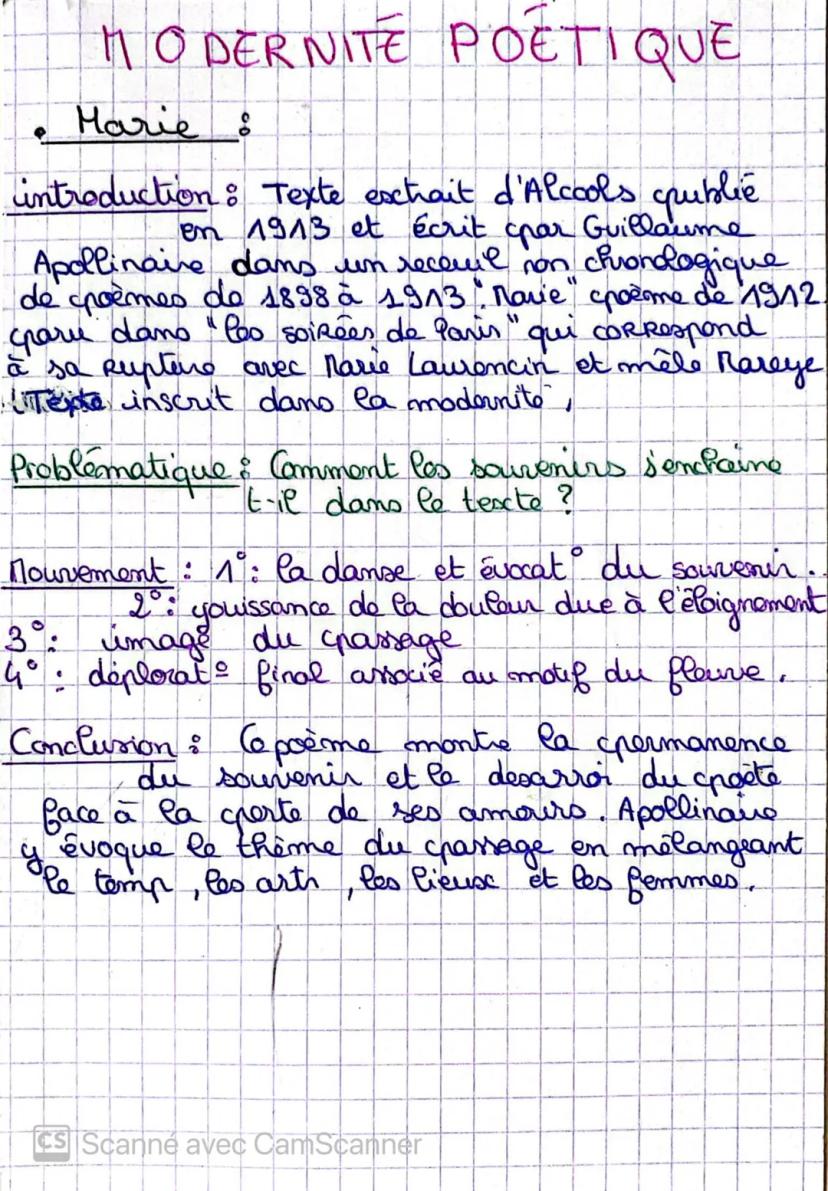 MODERNITÉ POÉTIQUE
• Marie :
introduction : Texte extrait d'Alcools publié
en 1913 et écrit par Guillaume
Apollinaire dans un receuil non chronologique
de poèmes de 1898 à 1913. "Marie" poème de 1912
paru dans "les soirées de Paris" qui correspond
à sa rupture avec Marie Laurencin et mêle Mareye
Texte inscrit dans la modernité,
Problématique : Comment les souvenirs s'enchaine
t-il dans le texte ?
Mouvement : 1° : la danse et évocat° du souvenir.
2° : jouissance de la douleur due à l'éloignement
3° : image du passage
4° : déplorat° final associé au motif du fleuve.
Conclusion : Ce poème montre la permanence
du souvenir et le desarroi du poète
face à la perte de ses amours. Apollinaire
y évoque le thème du passage en mélangeant
le temp, les arts, les lieux et les femmes.
CS Scanné avec CamScanner